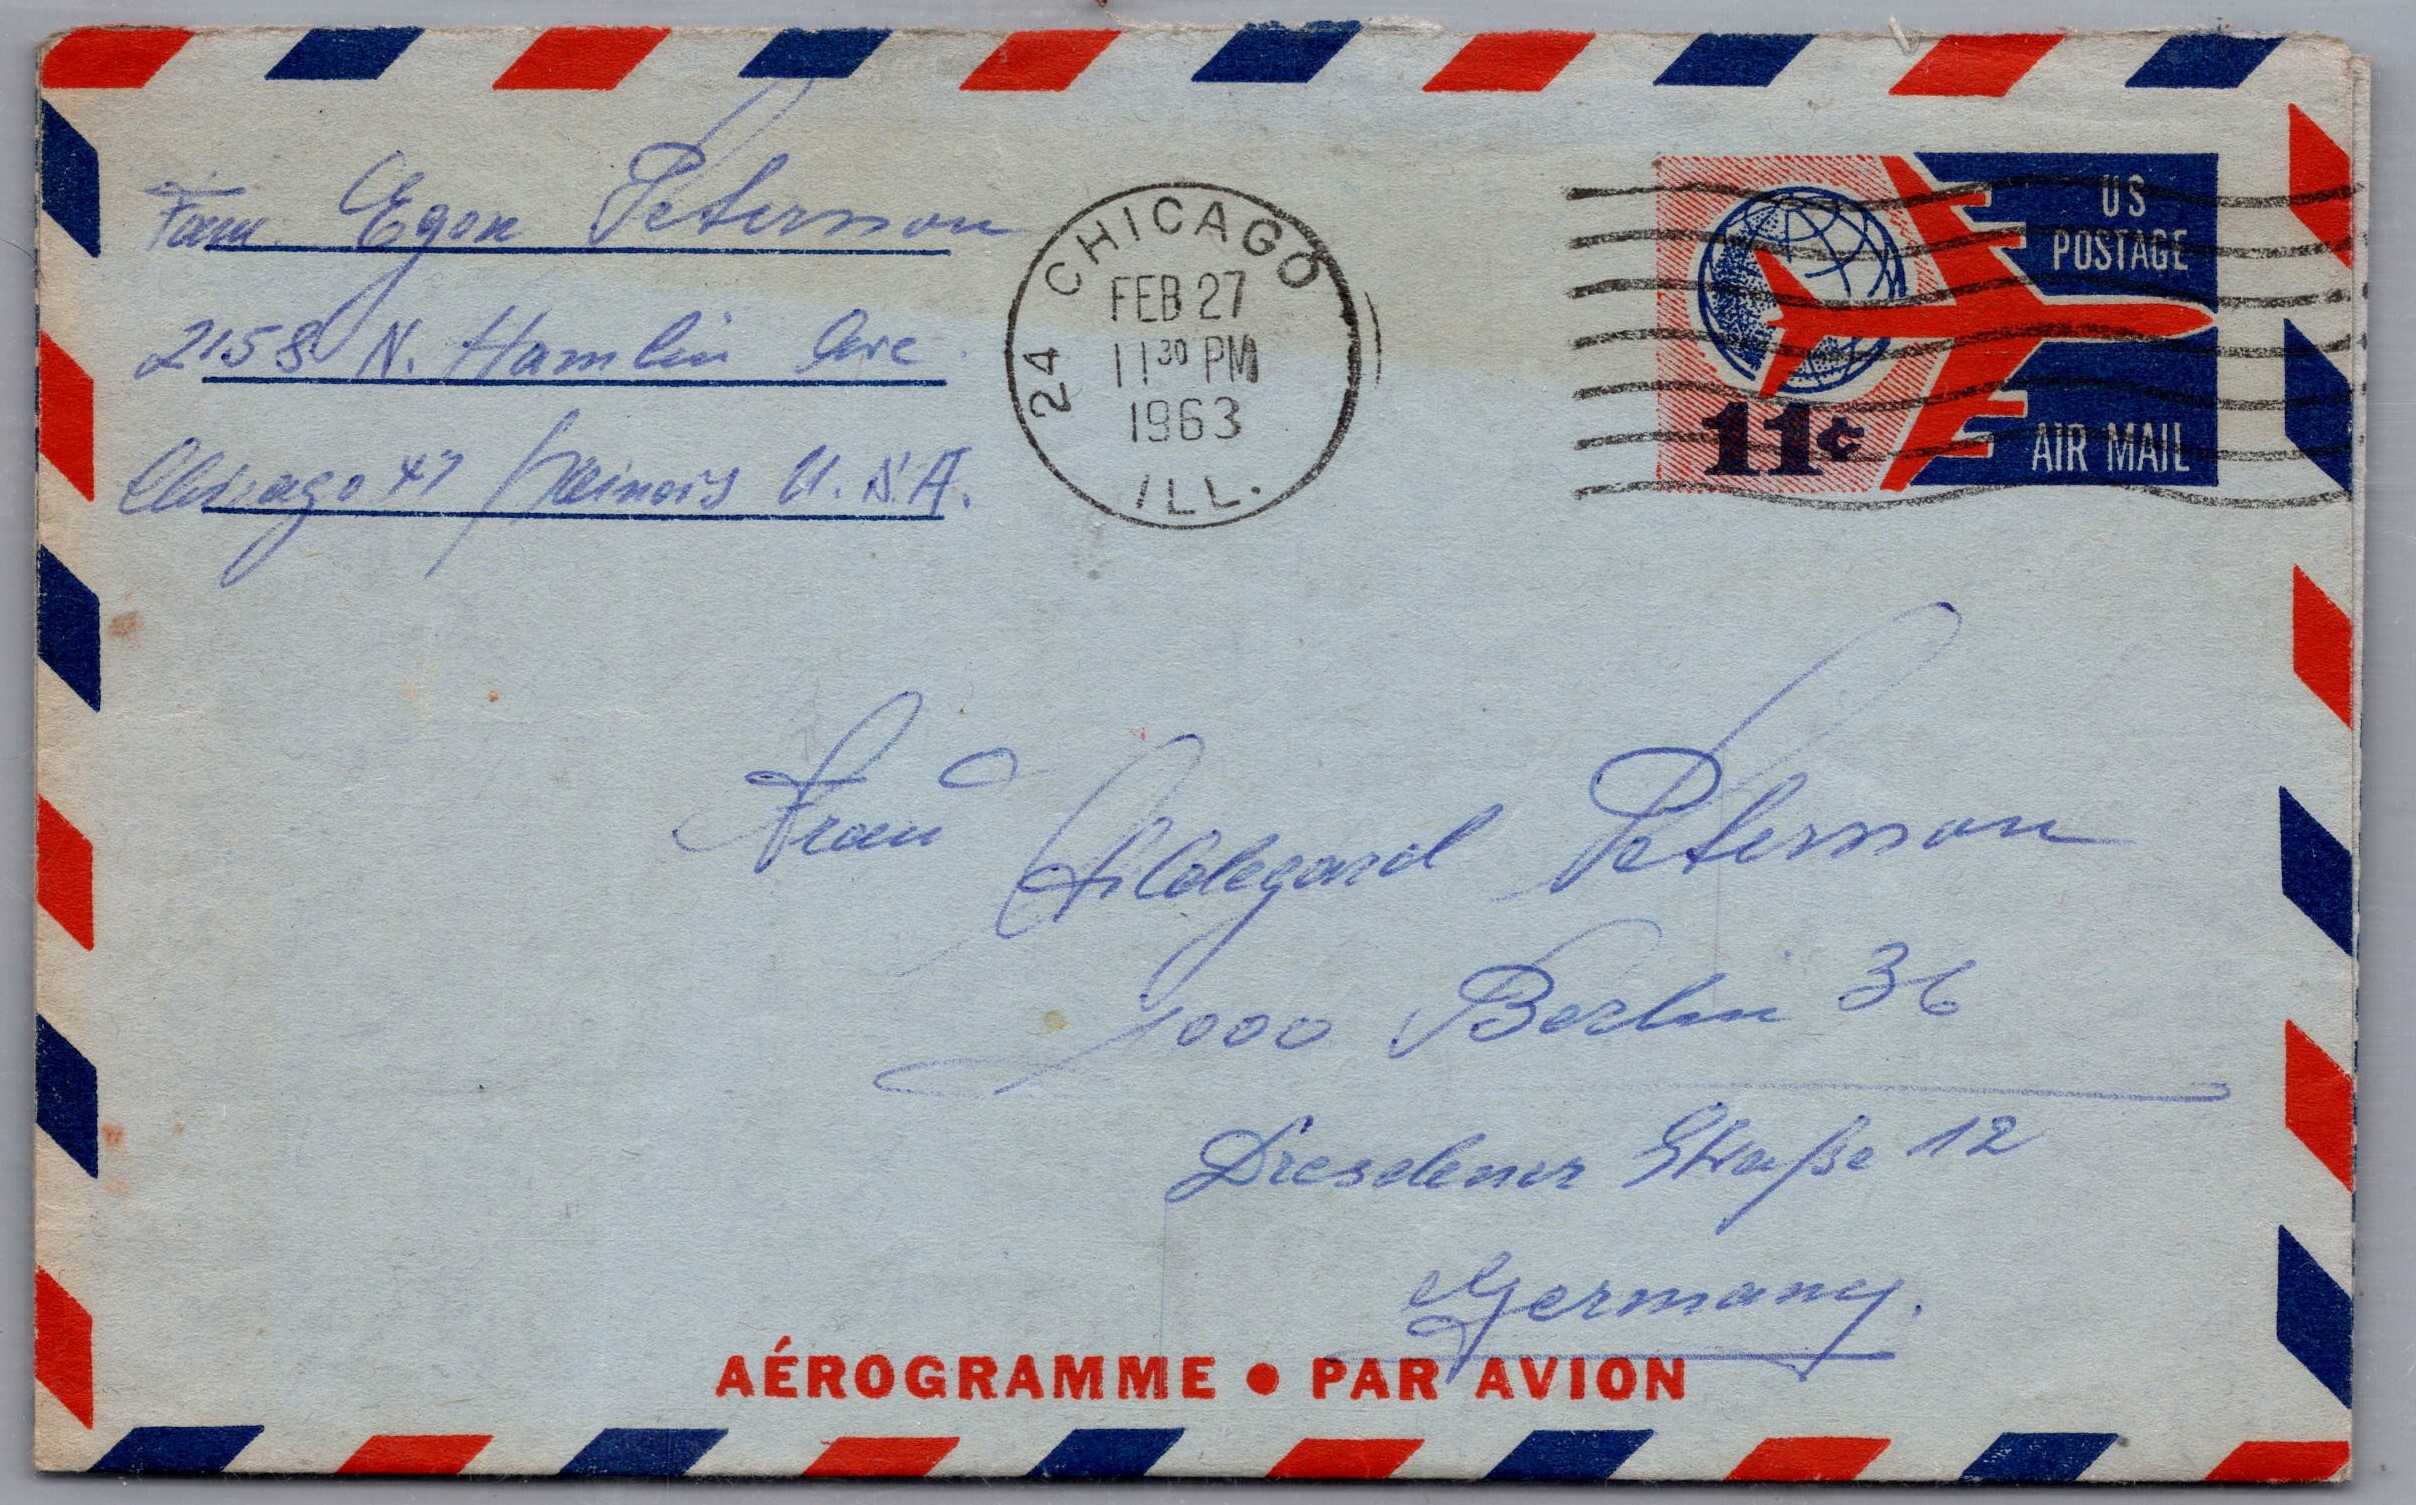 Fam. Egon Peterson
2158 N. Hamlin Ave.
Chicago 47 Illinois U.S.A.
CHICAGO
24
FEB 27
11 30 PM
1963
ILL.
US
POSTAGE
11¢
AIR MAIL
Frau Hildegard Peterson
1000 Berlin 36
Dresdener Straße 12
Germany.
AÉROGRAMME • PAR AVION